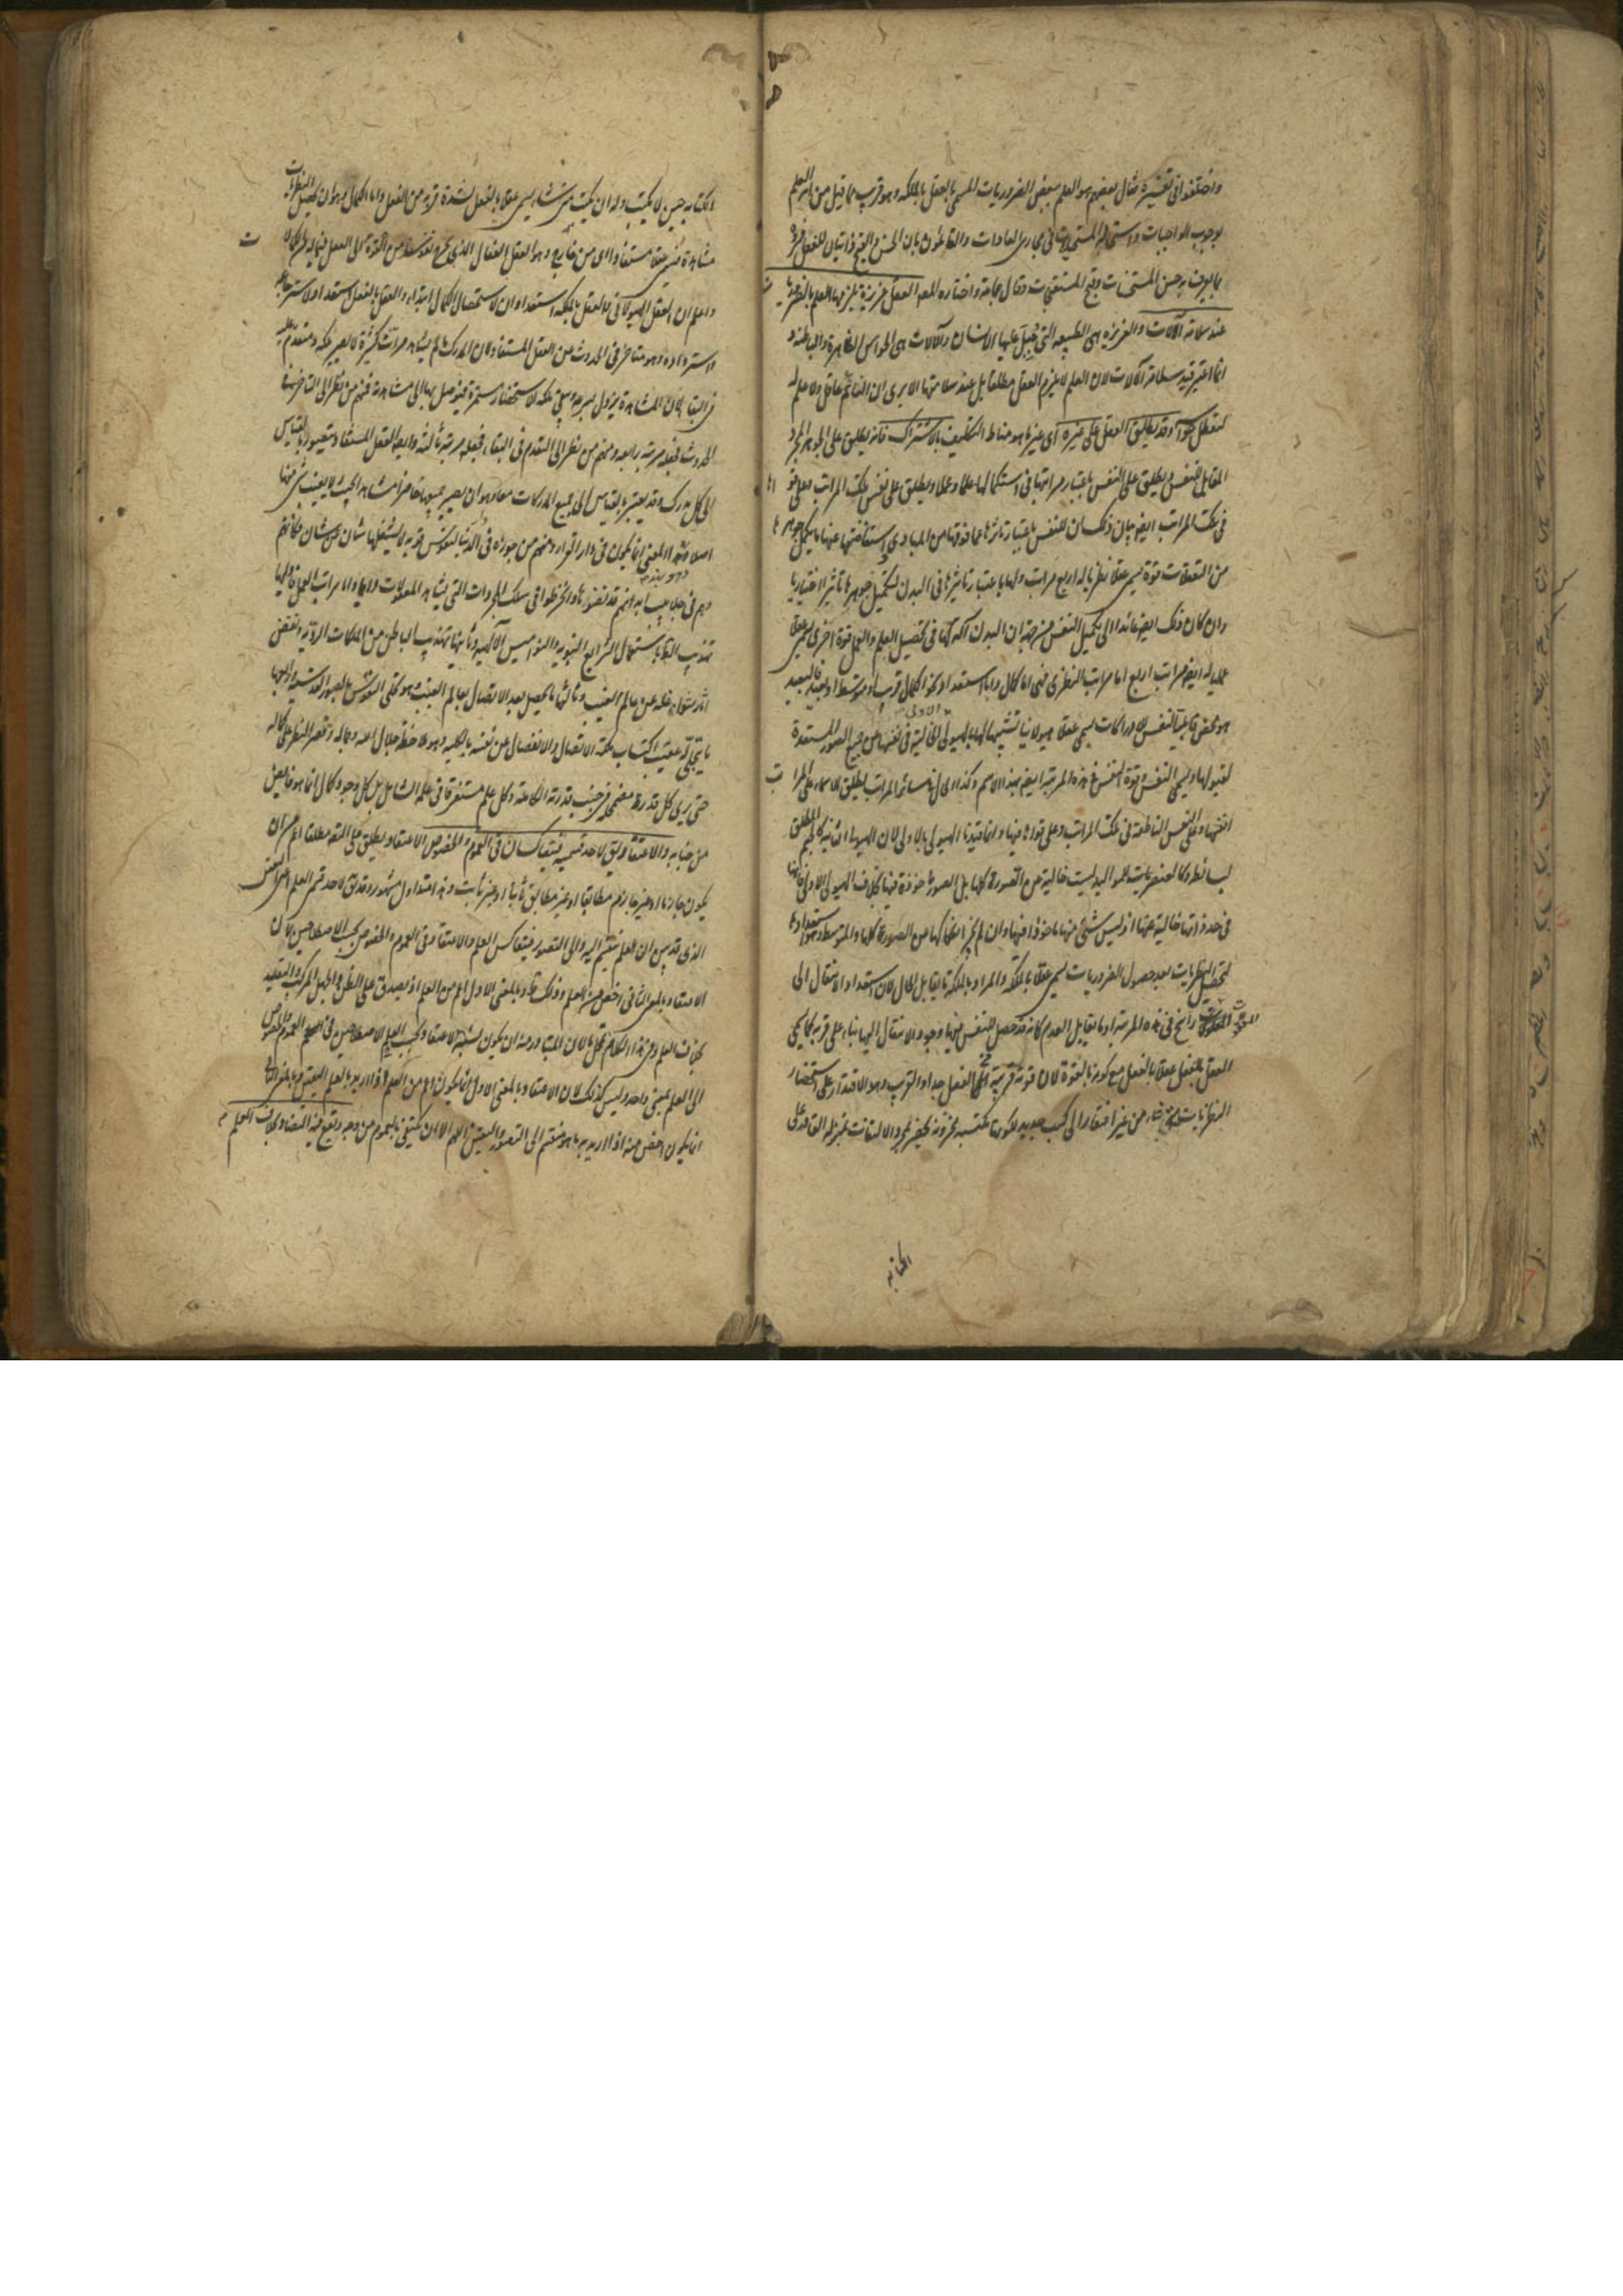 واختلفوا فى تفسيره فقال بعضهم هو العلم ببعض الضروريات المسمى بالعقل بالملكه وهو قريب مما قيل من انه العلم
بوجوب الواجبات واستحالة المستحيلات فى مجارى العادات والقائلون بان الحسن والقبح ذاتيان للفعل فسروه
بما يعرف به حسن المستحسنات وقبح المستقبحات وقال جماعة واختاره المصـ العقل غريزة يلزمها العلم بالضروريات
عند سلامة الآلات والغريزه هى الطبيعه التى جُبِلَ عليها الانسان والآلات هى الحواس الظاهرة والباطنه و
انما اعتبر قيد سلامة الآلات لان العلم لا يلزم العقل مطلقا بل عند سلامتها الا يرى ان النائم عاقل ولا علم له
لتعطل حواسه وقد يطلق العقل على غيره اى غير ما هو مناط التكليف بالاشتراك فانه يطلق على الجوهر المجرد
المقابل للنفس ويطلق على النفس باعتبار مراتبها فى استكمالها علما وعملا ويطلق على نفس تلك المراتب وعلى قواها
فى تلك المراتب ايضا بيان ذلك ان للنفس باعتبار تاثرها عما فوقها من المبادى واستفاضتها عنها ما يكمل جوهرها
من التعقلات قوة تسمى عقلا نظريا له اربع مراتب ولها باعتبار تاثيرها فى البدن لتكميل جوهرها تاثيرا اختياريا
وان كان ذلك ايضا عائدا الى تكميل النفس من جهة ان البدن آلة لها فى تحصيل العلم والعمل قوة اخرى تسمى عقلا
عمليا له ايضا مراتب اربع اما مراتب النظرى فهى اما كمال واما استعداد نحو الكمال قريب او متوسط او بعيد فالبعيد
هو محض قابلية النفس للادراكات يسمى عقلا هيولانيا تشبيها لها بالهيولى الاولى الخالية فى نفسها عن جميع الصور المستعدة
لقبولها ويسمى النفس وقوة النفس فى هذه المرتبة ايضا بهذا الاسم وكذا الحال فى سائر المراتب يطلق الاسماء على المراتب
انفسها وعلى النفس الناطقة فى تلك المراتب وعلى قواها فيها وانما قيدنا الهيولى بالاولى لان الهيولى الثانيه كالجسم المطلق
لبسائط وكالعنصريات للمواليد ليست خالية عن الصورة كلها بل الصورة ماخوذة فيها بخلاف الهيولى الاولى فانها
فى حد ذاتها خالية عنها اذ ليس شئ منها ماخوذا فيها وان لم يجز انفكاكها عن الصورة كلها والمتوسط وهو استعدادها
لتحصيل النظريات بعد حصول الضروريات تسمى عقلا بالملكة والمراد بالملكة ما يقابل الحال لان استعداد الانتقال الى
المعقولات راسخ فى هذه المرتبة او ما يقابل العدم كانه قد حصل للنفس فيها وجود الانتقال اليها بناء على قربه كما يسمى
العقل بالفعل عقلا بالفعل مع كونه بالقوة لان قوته قريبة من الفعل جدا والقريب وهو الاقتدار على استحضار
النظريات متى شاء من غير افتقار الى كسب جديد لكونها مكتسبه مخزونه تحضر بمجرد الالتفات بمنزله القادر على
الكتابه
الكتابه حين لا يكتب وله ان يكتب متى شاء يسمى عقلا بالفعل لشدة قربه من الفعل واما الكمال فهو ان يحصل النظريات
مشاهدة تسمى عقلا مستفادا اى من خارج وهو العقل الفعال الذى يخرج نفوسنا من القوة الى الفعل فيما له من الكمالات
واعلم ان العقل الهيولانى والعقل بالملكه استعدادان لاستحصال الكمال ابتداء والعقل بالفعل استعداد لاسترجاعه
واسترداده وهو متاخر فى الحدوث عن العقل المستفاد لان المدرك ما لم يشاهد مرات كثيرة لا يصير ملكه ومتقدم عليه
فى البقاء لان المشاهدة يزول بسرعه وتبقى ملكة الاستحضار مستمرة فيتوصل بها الى مشاهدته فمنهم من نظر الى التاخر فى
الحدوث فجعله مرتبه رابعه ومنهم من نظر الى التقدم فى البقاء فجعله مرتبة ثالثه ورابعه العقل المستفاد ويتصور بالقياس
الى كل مدرك وقد يعتبر بالقياس الى جميع المدركات معا وهو ان يصير جميعها حاضرا مشاهدا بحيث لا يغيب شئ منها
اصلا وهذا المعنى انما يكون فى دار القرار ومنهم من جوزه فى الدنيا لنفوس قويه لا يشغلها شان عن شان فكانهم
وهم فى جلابيب ابدانهم قد نضوها وانخرطوا فى سلك المجردات التى تشاهد المعقولات دائما واما مراتب العملى فاولها
تهذيب الظاهر باستعمال الشرايع النبويه والنواميس الالهيه وثانيها تهذيب الباطن من الملكات الرديّه ونفض
آثار شواغله عن عالم الغيب وثالثها ما يحصل بعد الاتصال بعالم الغيب وهو تحلى النفوس بالصور القدسيه ورابعها
ما يتجلى له عقيب اكتساب ملكة الاتصال والانفصال عن نفسه بالكليه وهو ملاحظة جلال الله وجماله وقصر النظر على كماله
حتى يرى كل قدرة مضمحلة فى جنب قدرته الكامله وكل علم مستغرقا فى علمه الشامل بل كل وجود وكمال انما هو فايض
من جنابه والاعتقاد يقال لاحد قسميه فيتعاكسان فى العموم والخصوص الاعتقاد يطلق على التصديق مطلقا اعم من ان
يكون جازما او غير جازم مطابقا او غير مطابق ثابتا او غير ثابت وهذا متداول مشهور وقد يقال لاحد قسمى العلم اعنى اليقين
الذى قد بين ان العلم ينقسم اليه والى التصور فيتعاكس العلم والاعتقاد فى العموم والخصوص بحسب الاصطلاحين لان
الاعتقاد بالمعنى الثانى اخص من العلم وذلك ظ وبالمعنى الاول اعم من العلم اذ يصدق على الظن والجهل المركب والتقليد
بخلاف العلم وفى هذا الكلام محل لان المتبادر منه ان يكون نسبة الاعتقاد بحسب الاصطلاحين فى العموم والخصوص
الى العلم بمعنى واحد وليس كذلك لان الاعتقاد بالمعنى الاول انما يكون اعم من العلم اذا اريد بالعلم اليقين وبالمعنى الثانى
انما يكون اخص منه اذا اريد به ما هو منقسم الى التصور واليقين اللهم الا ان يكتفى بالعموم من وجه ويقع فيه التضاد بخلاف العلم